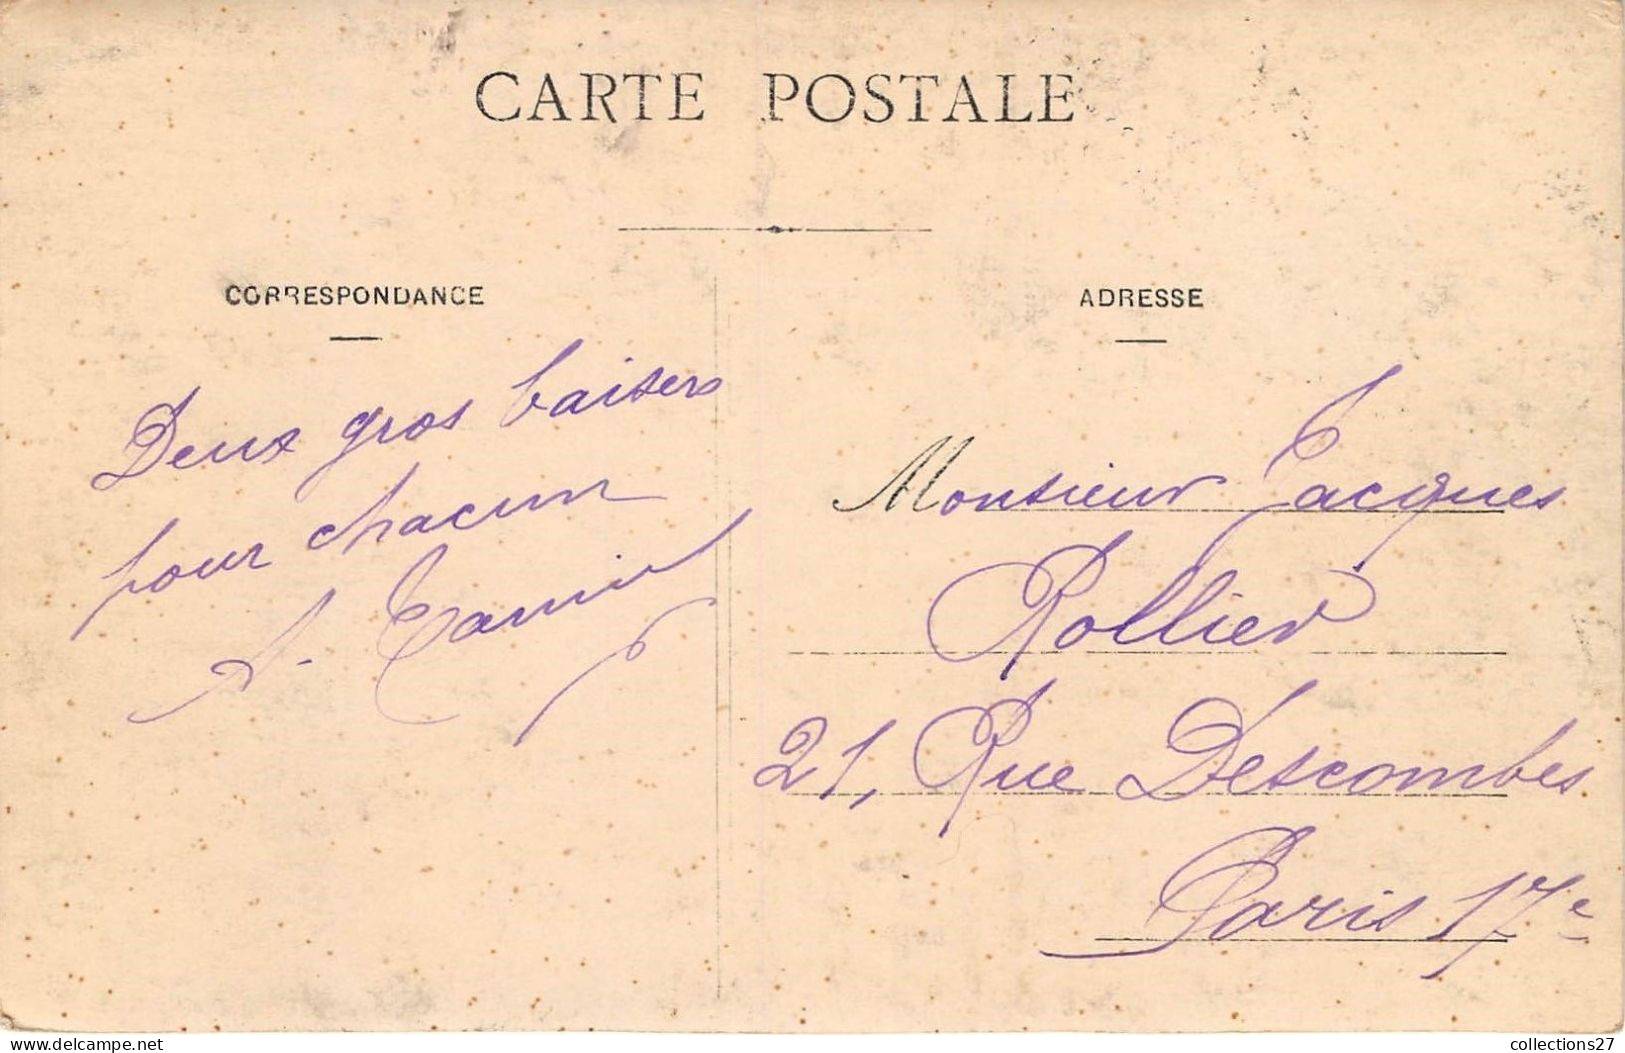 CARTE POSTALE
CORRESPONDANCE
Deux gros baisers
pour chacun
ADRESSE
Monsieur Jacques
Rollier
21, Rue Descombes
Paris 17e
www.delcampe.net
collections27